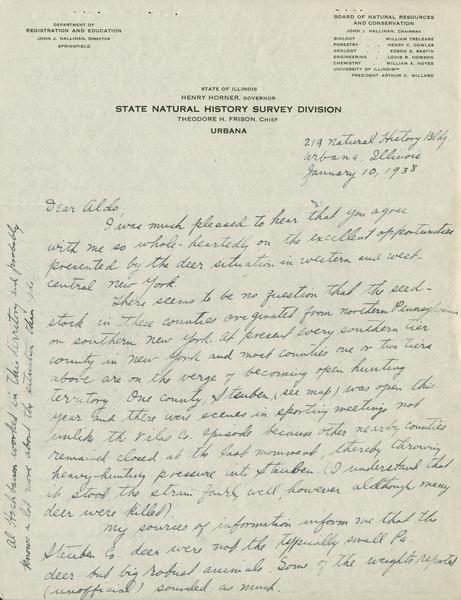 DEPARTMENT OF
REGISTRATION AND EDUCATION
JOHN J. HALLIHAN, DIRECTOR
SPRINGFIELD
BOARD OF NATURAL RESOURCES
AND CONSERVATION
JOHN J. HALLIHAN, CHAIRMAN
BIOLOGY - - WILLIAM TRELEASE
FORESTRY - - HENRY C. COWLES
GEOLOGY - - EDSON S. BASTIN
ENGINEERING - LOUIS R. HOWSON
CHEMISTRY - WILLIAM A. NOYES
UNIVERSITY OF ILLINOIS—
PRESIDENT ARTHUR C. WILLARD
STATE OF ILLINOIS
HENRY HORNER, GOVERNOR
STATE NATURAL HISTORY SURVEY DIVISION
THEODORE H. FRISON, CHIEF
URBANA
219 Natural History Bldg
Urbana, Illinois
January 10, 1938
Dear Aldo,
I was much pleased to hear that you agree
with me so whole-heartedly on the excellent opportunities
presented by the deer situation in western and west-
central New York.
There seems to be no question that the seed-
stock in these counties originated from northern Pennsylvania
on southern New York. At present every southern tier
county in New York and most counties one or two tiers
above are on the verge of becoming open hunting
territory. One county, Steuben, (see map) was open this
year and there were scenes in sporting meetings not
unlike the Vilas Co. episode because other nearby counties
remained closed at the last moment, thereby throwing
heavy hunting pressure into Steuben. (I understand that
it stood the strain fairly well however although many
deer were killed).
My sources of information inform me that the
Steuben Co. deer were not the typically small Pa.
deer but big robust animals. Some of the weights reported
(unofficial) sounded as much.
Al Hochbaum worked in this territory and probably
knows a lot more about the situation than I do.